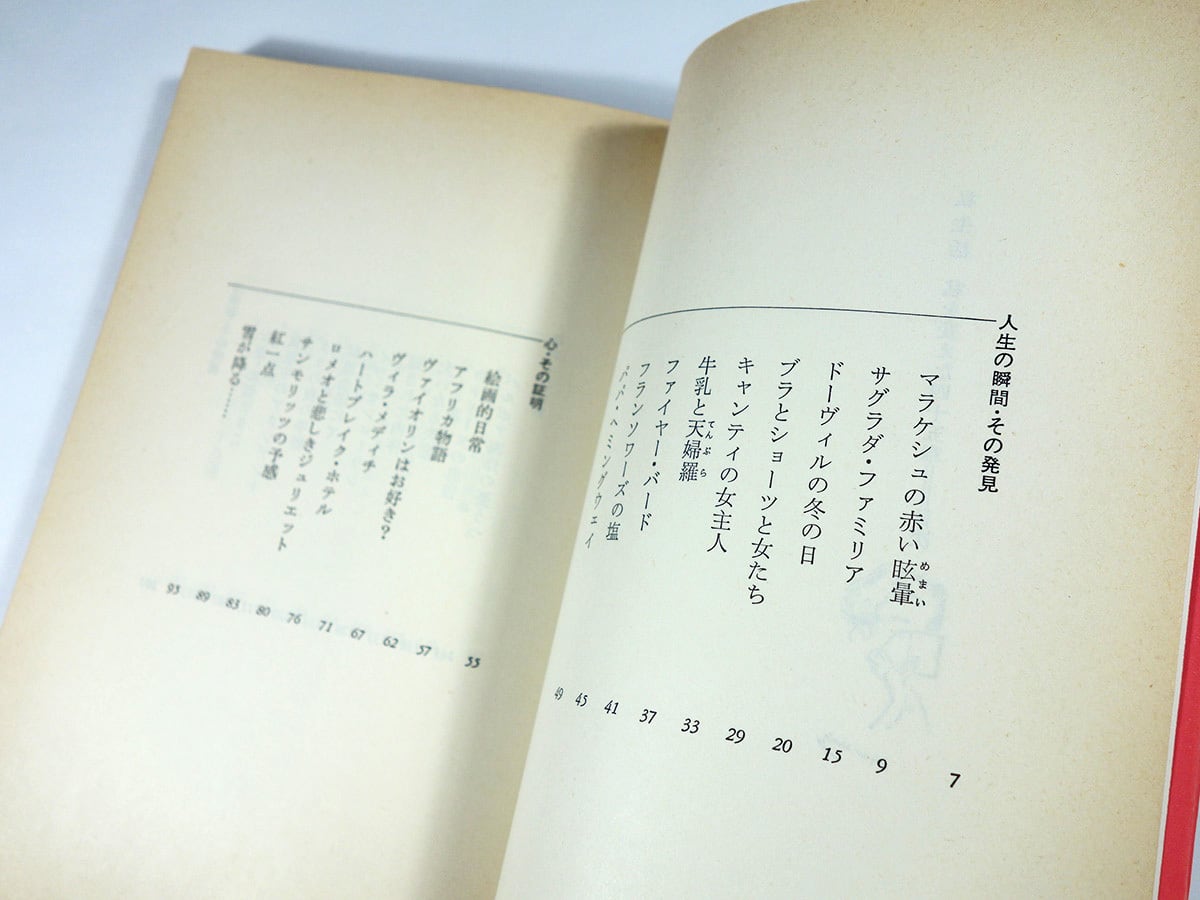 人生の瞬間・その発見 7
マラケシュの赤い眩暈 9
めまい
サグラダ・ファミリア 15
ドーヴィルの冬の日 20
ブラとショーツと女たち 29
キャンティの女主人 33
牛乳と天婦羅 37
てんぷら
ファイヤー・バード 41
フランソワーズの塩 45
パパ・ヘミングウェイ 49
心・その証明 55
絵画的日常 57
アフリカ物語 62
ヴァイオリンはお好き? 67
ヴィラ・メディチ 71
ハートブレイク・ホテル 76
ロメオと悲しきジュリエット 80
サンモリッツの予感 83
紅一点 89
雪が降る…… 93